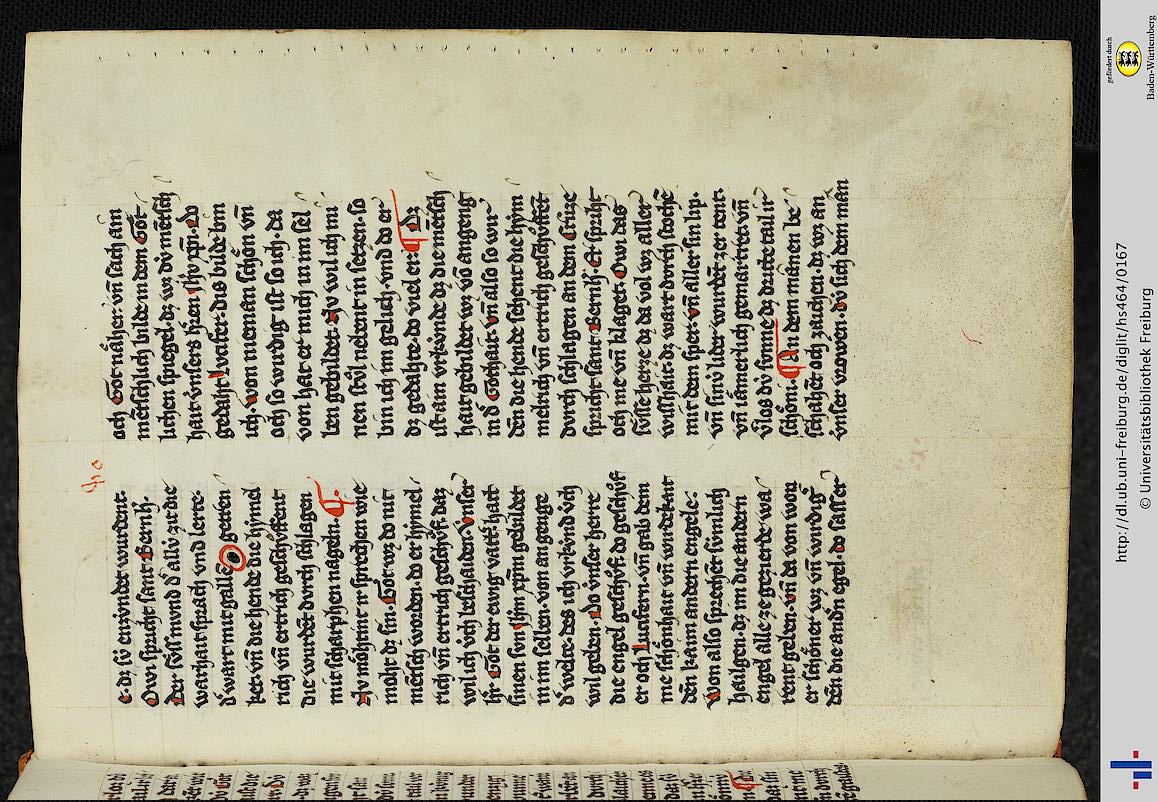 e. dz sv́ enzv́ndet wurdent.
Owi spricht sant Bernh.
Der sv́ss mvnd d' allv́ zit die
warhait sprach vnd lerte.
d' wart mit gallē getren
ket. vn̄ die hende die hymel
rich vn̄ ertrich geschv́ffent
die wurdēt dvrch schlagen
mit scharphen nageln.
Nv mȯhtint ir sprechen wie
moht dz sin. Got wz do nit
mēsch worden. do er hymel
rich vn̄ ertrich geschv́f. daz
wil ich v́ch beschaiden. Vnser
h'r Got der ewig vatt' hatt
sinen svn ih̄m xp̄m gebildet
in im selben. von angenge
d' welte. des ich vrkv́nd v́ch
wil geben. Do v́nser herre
die engel geschv́f. do geschv́f
er och Lucifern. vn̄ gab dem
me schȯnhait vn̄ wirdekait
dēn kaim andern engele.
Won also sprechēt sv́mlich
hailgen. dz im die andern
engel alle ze gezierde wa
rent geben. vn̄ da von won
er schȯner wz vn̄ wirdig'
dēn die andn̄ engel. do sasser
och Got nȧher. vn̄ sach ain
mēschlich bilde in dem Gȯt
lichen spiegel. dz wz dv́ mēsch
hait vnsers h'ren ih̄v xp̄i. Do
gedaht Lvcifer. dis bilde bin
ich. won nieman schȯn vn̄
och so wirdig ist so ich. da
von hat er mich in im sel
ben gebildet. Nv wil ich mi
nen stv̊l nebent in setzen. so
bin ich im gelich. vnd do er
dz gedahte. do viel er. Dz
ist ain vrkv́nde dz die mēsch
hait gebildet wz vȯ angeng
in d' Gothait. vn̄ also so wir
dēn die hende sehent die hym
melrich vn̄ ertrich geschv́ffēt
dvrch schlagen an dem Crv́ze
spricht sant Bernh. Er spriht
och me vn̄ klaget. Owi das
sv́sse herze dz da vol wz aller
wisshait. dz wart dvrch stochē
mit dem sper. vn̄ aller sin lip.
vn̄ sinv́ lider wurdēt zer tent.
vn̄ iamerlich gemartret. vn̄
v'los dv́ svnne dz dritte tail ir
schȯni. An dem mānen be
schahēt och zaichen. dz wz an
v́nser vrowen. dv́ sich dem mān
gefördert durch
Baden-Württemberg
http://dl.ub.uni-freiburg.de/diglit/hs464/0167
© Universitätsbibliothek Freiburg